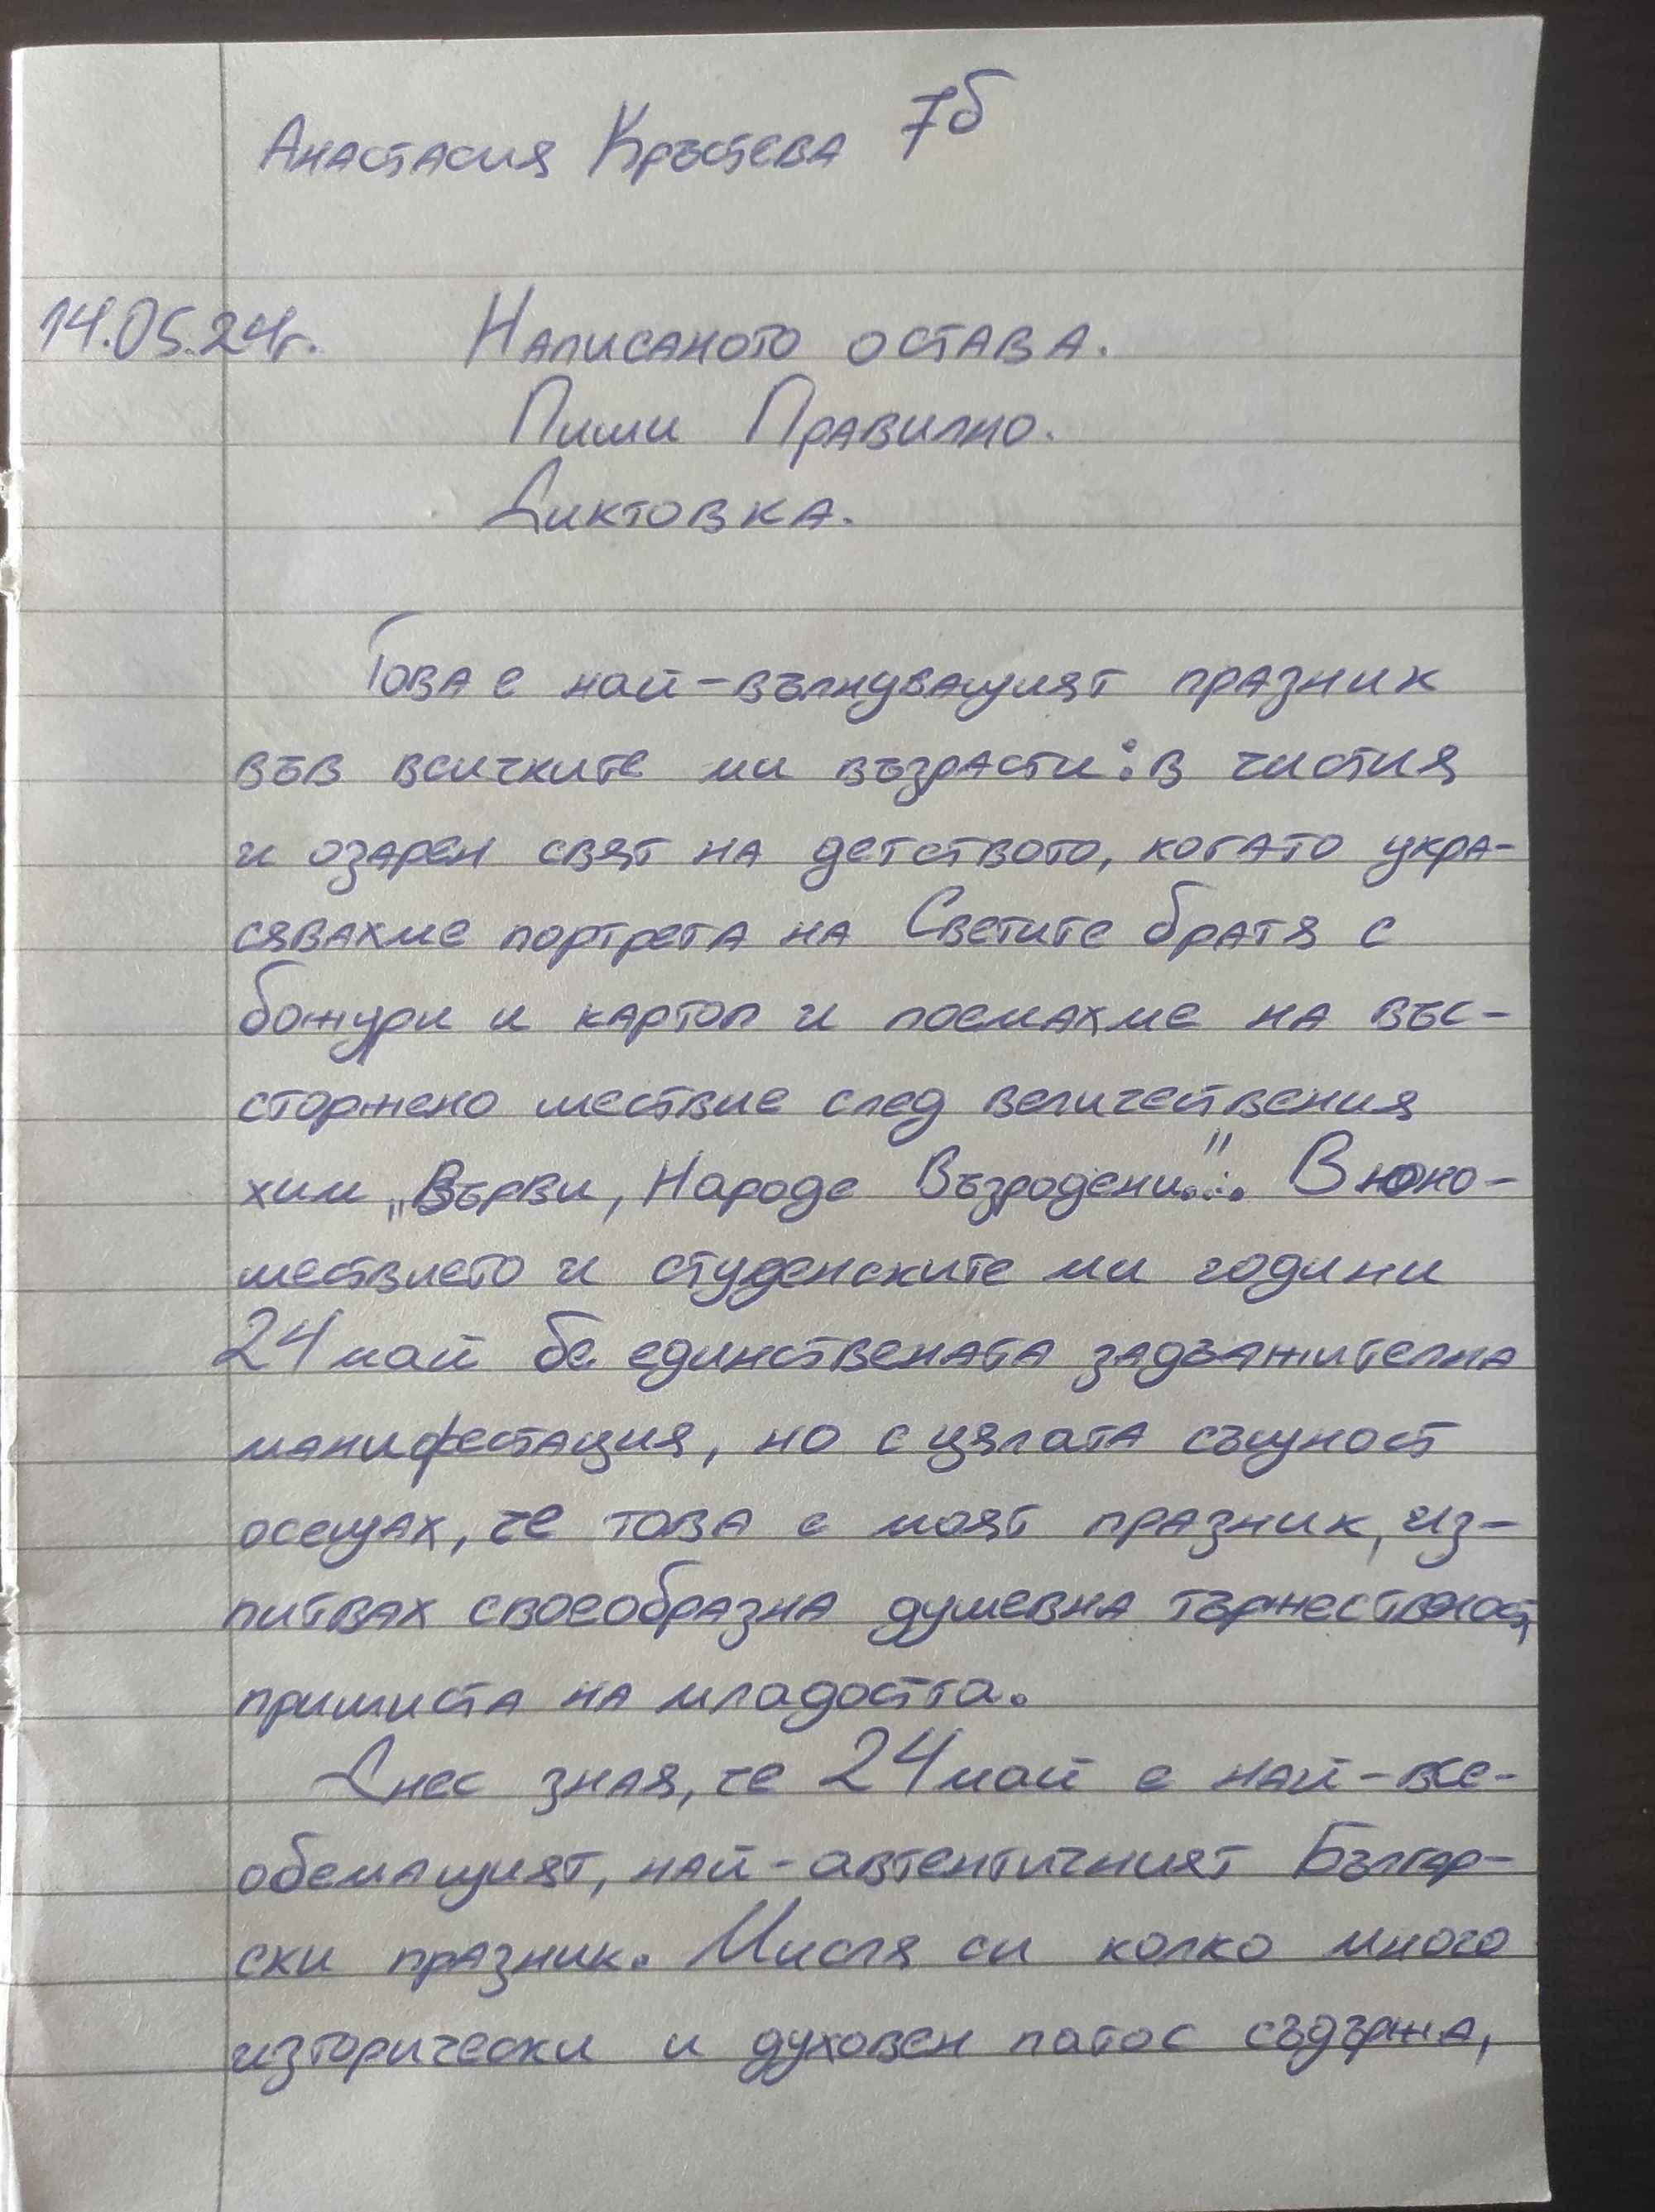 Анастасия Кръстева 7б
14.05.24г. Написаното остава.
Пиши Правилно.
Диктовка.
Това е най-вълнуващият празник
във всичките ми възрасти: в чистия
и озарен свят на детството, когато укра-
сявахме портрета на Светите братя с
божури и картоп и поемахме на със-
сторжено шествие след величествения
химн „Върви, Народе Възродени...". В юно-
шествието и студенските ми години
24 май бе единствената задължителна
манифестация, но с цялата същност
осещах, че това е моят празник, из-
питвах своеобразна душевна тържественост,
пришиста на младостта.
Днес зная, че 24 май е най-все-
обемащият, най-автентичният Българ-
ски празник. Мисля си колко много
изторически и духовен патос съдържа,